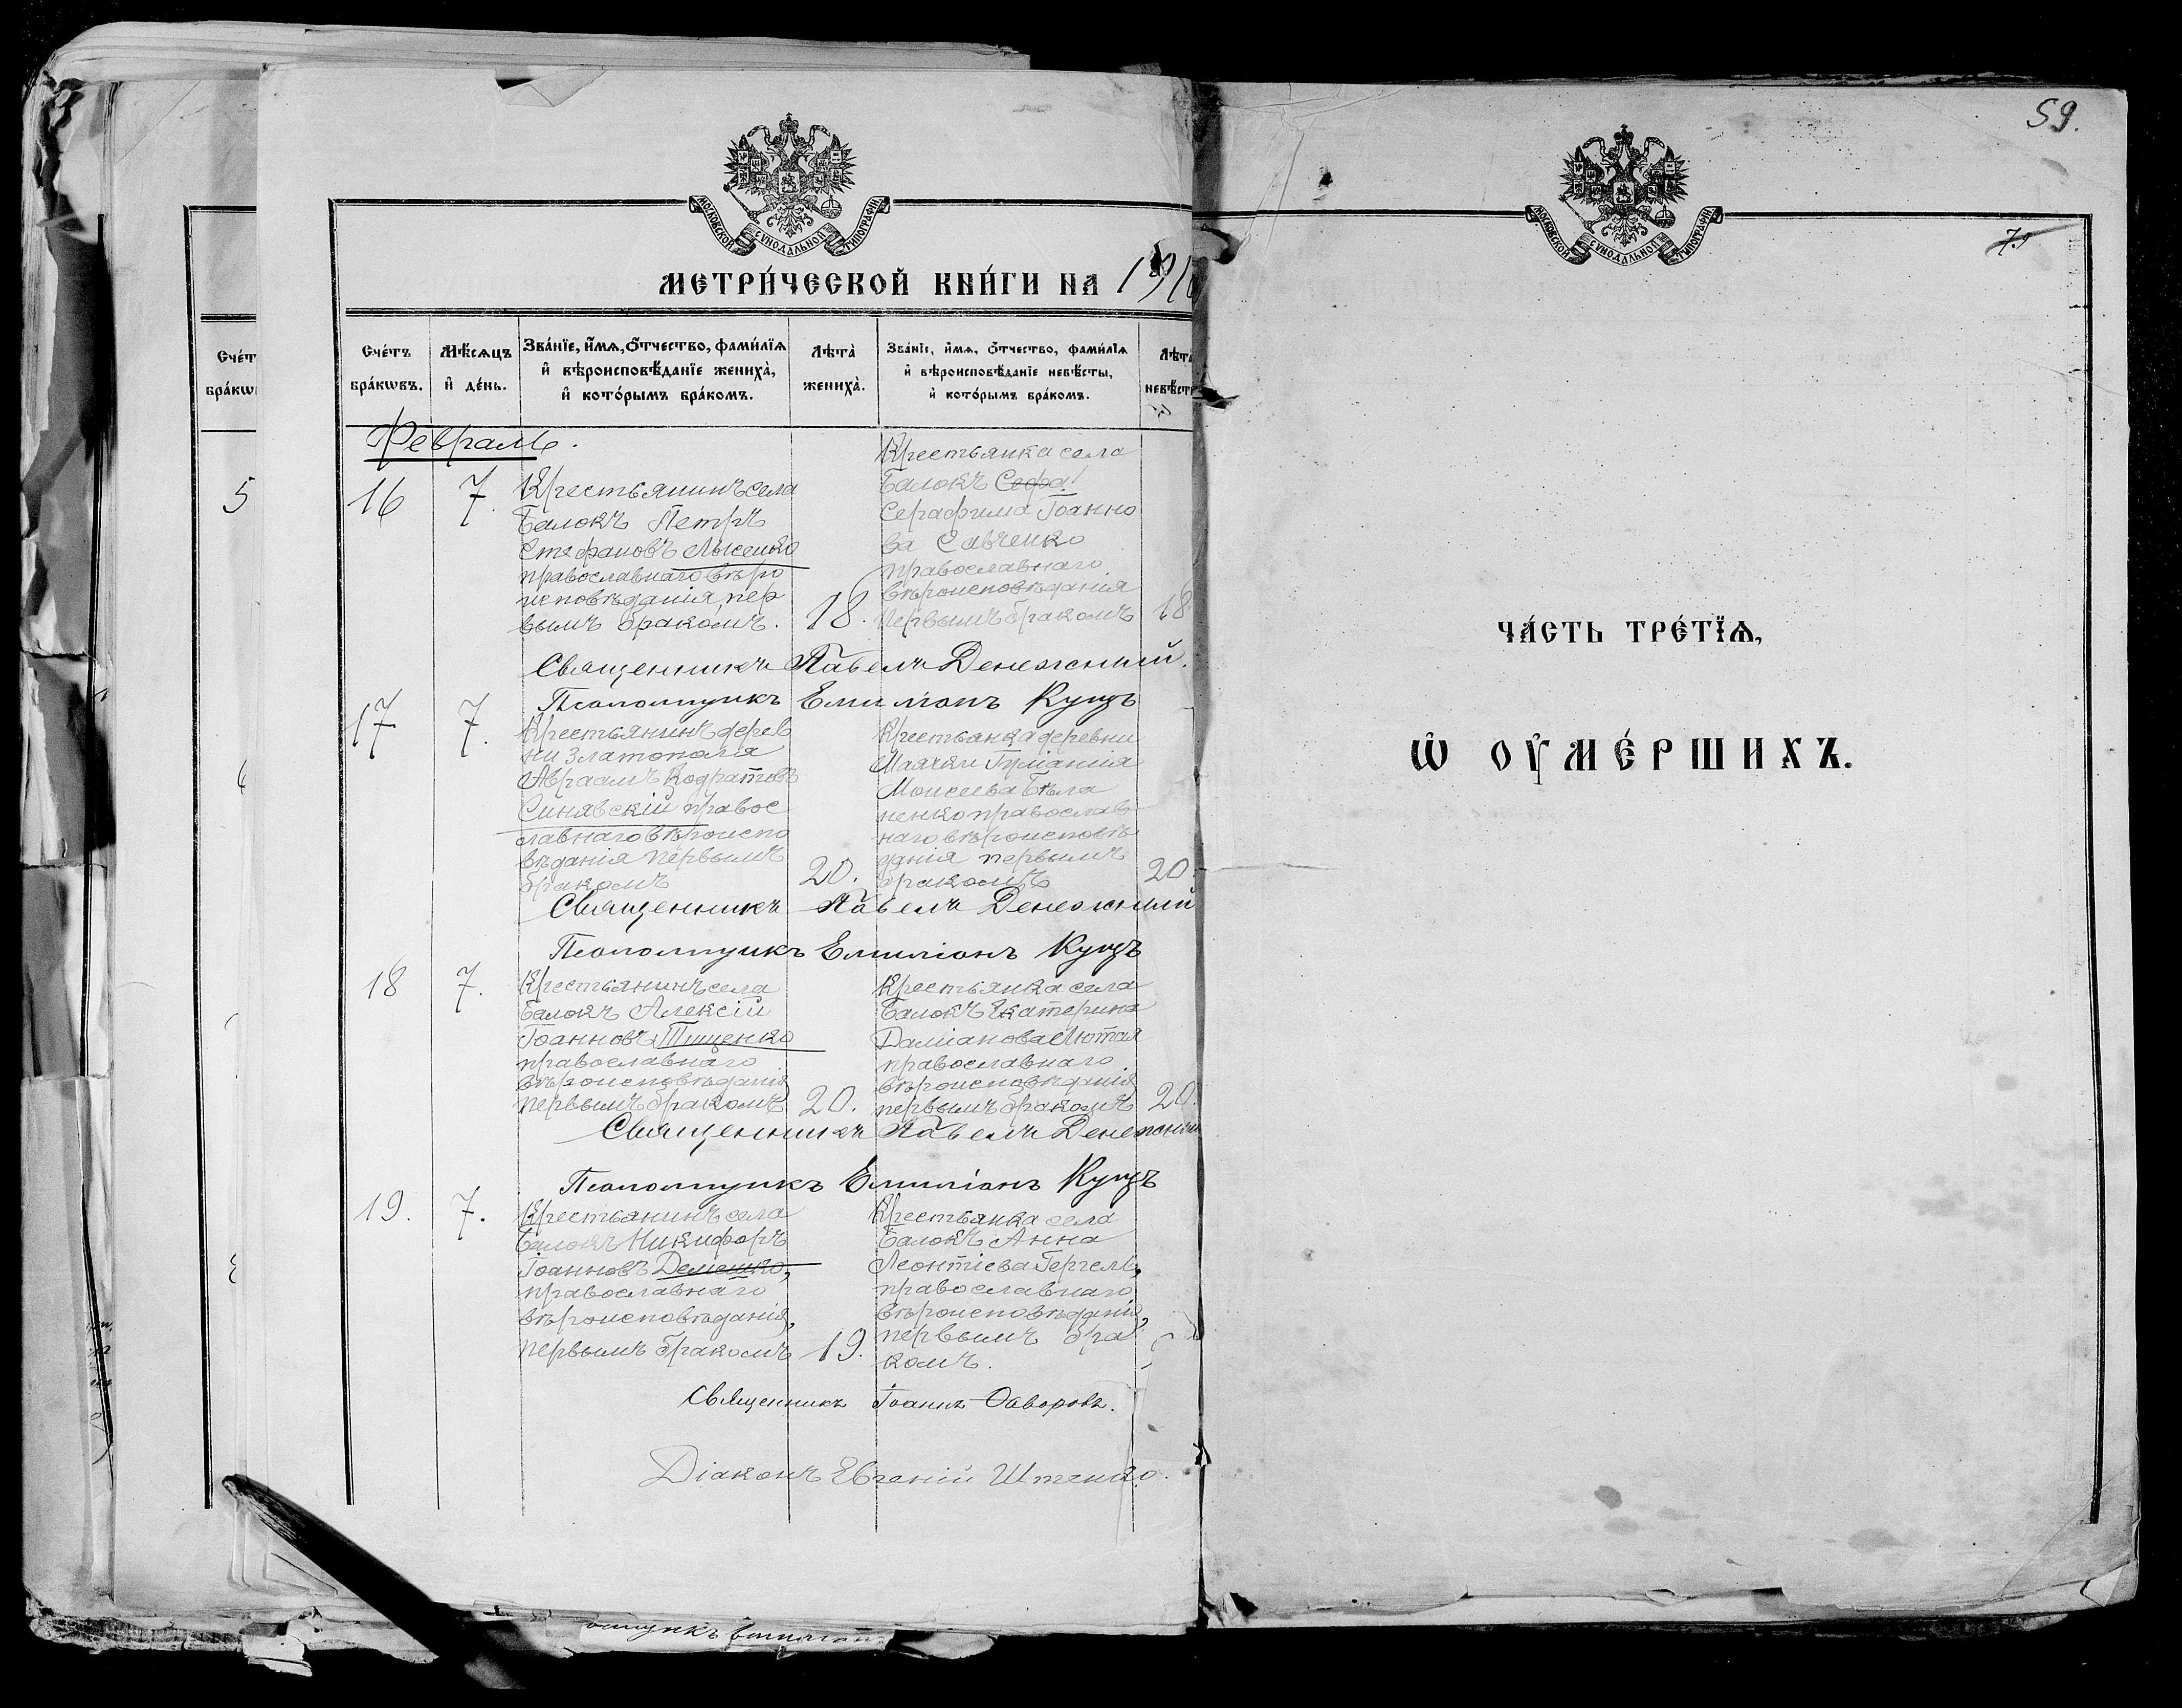 МОСКОВСКОЙ СѴНОДАЛЬНОЙ ТИПОГРАФІИ
МЕТРИ́ЧЕСКОЙ КНИ́ГИ НА 191
Сче́тъ бра́кѡвъ.
Мѣ́сѧцъ и҆ де́нь.
Зва́нїе, и҆́мѧ, ѻ҆́тчество, фами́лїѧ и҆ вѣроисповѣ́данїе жениха̀, и҆ кото́рымъ бра́комъ.
Лѣта̀ жениха̀.
Зва́нїе, и҆́мѧ, ѻ҆́тчество, фами́лїѧ и҆ вѣроисповѣ́данїе невѣ́сты, и҆ кото́рымъ бра́комъ.
Лѣта̀ невѣ́ст
Сче́т
бра́кѡв
5
Февраль.
16
7.
Крестьянинъ села
Балокъ Петръ
Стефановъ Лысенко
православнаго вѣро
исповѣданія, пер
вымъ бракомъ.
18.
Крестьянка села
Балокъ Сефа
Серафима Іоанно
ва Савченко
православнаго
вѣроисповѣданія
первымъ бракомъ
18
Священникъ Павелъ Денежный.
Псаломщикъ Емиліанъ Кущъ
17
7.
Крестьянинъ дерев
ни Златополя
Авраамъ Кодратовъ
Синявскій правос
славнаго вѣроиспо
вѣданія первымъ
бракомъ
20.
Крестьянка деревни
Маячки
Моисеева Бѣла
ненко православ
наго вѣроисповѣ
данія первымъ
бракомъ
20.
Священникъ Павелъ Денежный
Псаломщикъ Емиліанъ Кущъ
18
7.
Крестьянинъ села
Балокъ Алексій
Іоанновъ Тищенко
православнаго
вѣроисповѣданія
первымъ бракомъ
20.
Крестьянка села
Балокъ Екатерина
Даміанова Лютая
православнаго
вѣроисповѣданія
первымъ бракомъ
20.
Священникъ Павелъ Денежный
Псаломщикъ Емиліанъ Кущъ
19.
7.
Крестьянинъ села
Балокъ Никифоръ
Іоанновъ Демешко,
православнаго
вѣроисповѣданія,
первымъ бракомъ
19.
Крестьянка села
Балокъ Анна
Леонтіева Гергель,
православнаго
вѣроисповѣданія,
первымъ бра
комъ.
Священникъ Іоаннъ Ѳаворовъ.
Діаконъ Евгеній Штенко.
59.
МОСКОВСКОЙ СѴНОДАЛЬНОЙ ТИПОГРАФІИ
ЧА́СТЬ ТРЕ́ТЇѦ,
Ѽ ОУ҆МЕ́РШИХЪ.